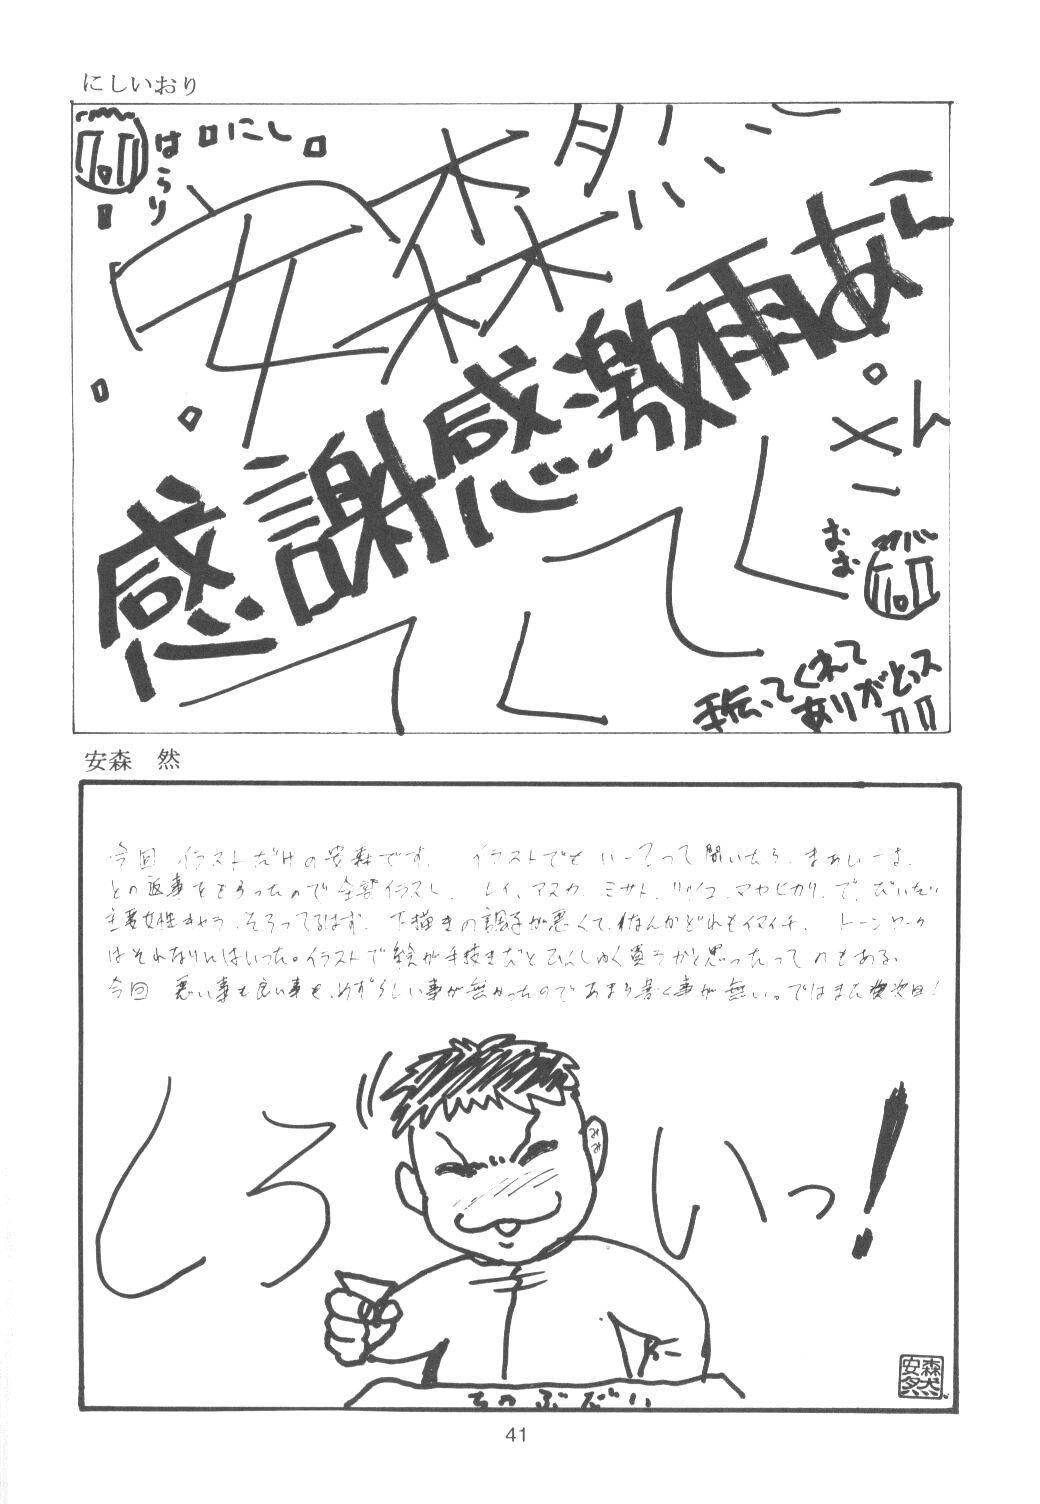 にしいおり
はらり
にし
安森然
感謝感激雨あ
おお
手伝ってくれて
ありがとっス
安森 然
今回 イラストだけの安森です。 イラストでもいーっスって聞いたら、まぁいーよ、
との返事をもらったので全部イラスト。 レイ、アスカ、ミサト、リツコ、マヤ、ヒカリ、で、だいたい
主要女性キャラ、そろってるはず。 下描きの調子が悪くて、なんかどれもイマイチ。 トーンワーク
はそれなりにはいった。イラストで絵が手抜きだとひんしゅく買うかと思ったってのもある。
今回 悪い事も良い事も、めずらしい事が無かったのであまり書く事が無い。ではまた次回!
しろいっ!
みみ
ちゃぶだい
安森然
41